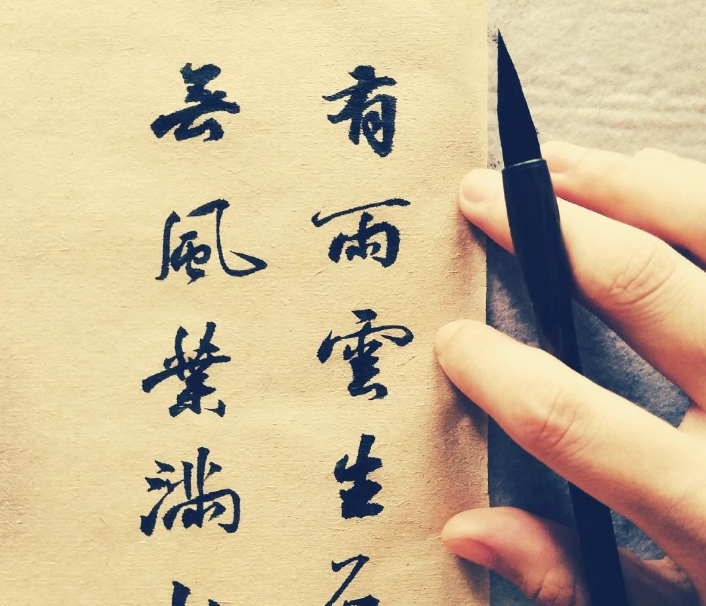 有雨雲生石
無風葉滿山